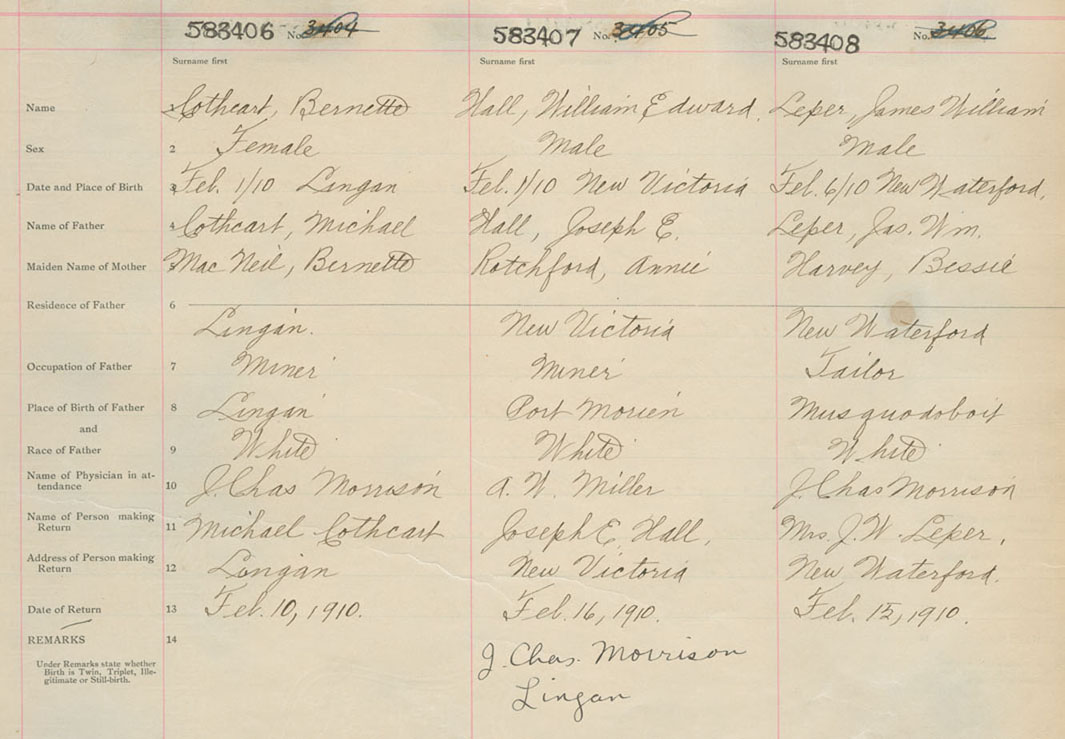 583406 No. 3404 583407 No. 3405 583408 No. 3406
Surname first Surname first Surname first
Name 1 Cothcart, Bernette Hall, William Edward. Leper, James William
Sex 2 Female Male Male
Date and Place of Birth 3 Feb. 1/10 Lingan Feb. 1/10 New Victoria Feb. 6/10 New Waterford.
Name of Father 4 Cothcart, Michael Hall, Joseph E. Leper, Jas. Wm.
Maiden Name of Mother 5 Mac Neil, Bernette Rotchford, Annie Harvey, Bessie
Residence of Father 6
Lingan. New Victoria New Waterford
Occupation of Father 7 Miner Miner Tailor
Place of Birth of Father 8 Lingan Port Morien Musquodoboit
and
Race of Father 9 White White White
Name of Physician in at-
tendance 10 J. Chas Morrison A. W. Miller J. Chas Morrison
Name of Person making
Return 11 Michael Cothcart Joseph E. Hall, Mrs. J. W. Leper,
Address of Person making
Return 12 Lingan New Victoria New Waterford.
Date of Return 13 Feb. 10, 1910. Feb. 16, 1910. Feb. 15, 1910.
REMARKS 14
Under Remarks state whether
Birth is Twin, Triplet, Ille-
gitimate or Still-birth.
J. Chas. Morrison
Lingan